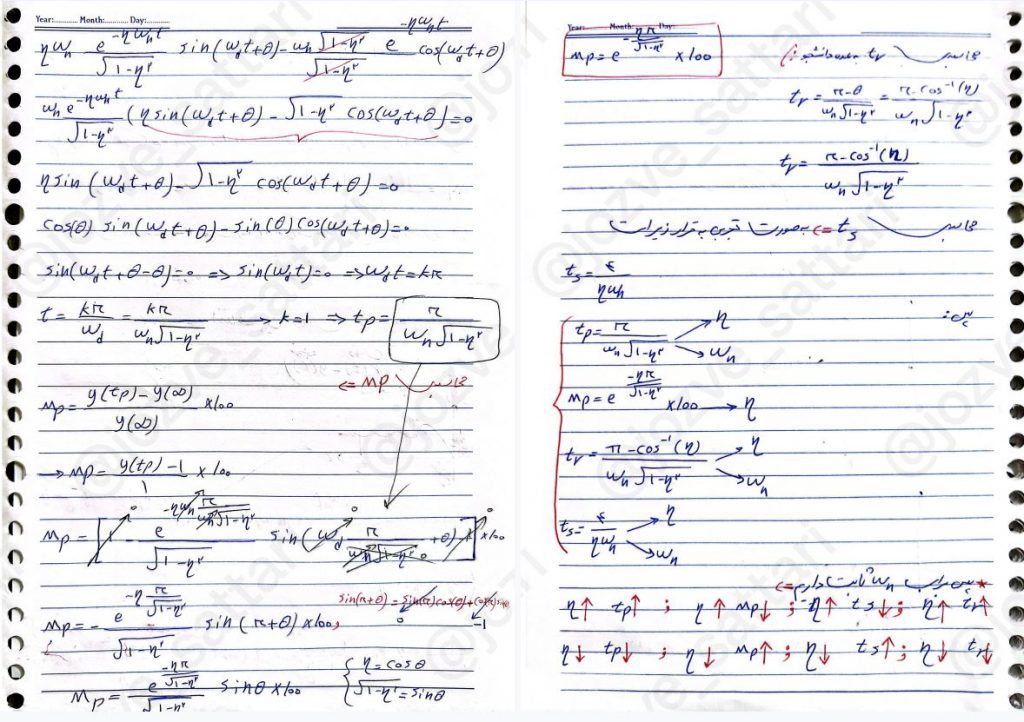 Year:.......... Month:.......... Day:..........
ηωn e^(-ηωnt)/√(1-η²) sin(ωdt+θ) - ωn √(1-η²)/√(1-η²) e^(-ηωnt) cos(ωdt+θ)
ωn e^(-ηωnt)/√(1-η²) (η sin(ωdt+θ) - √(1-η²) cos(ωdt+θ)) = 0
η sin(ωdt+θ) - √(1-η²) cos(ωdt+θ) = 0
cos(θ) sin(ωdt+θ) - sin(θ) cos(ωdt+θ) = 0
sin(ωdt+θ-θ) = 0 => sin(ωdt) = 0 => ωdt = kπ
t = kπ/ωd = kπ/(ωn√(1-η²)) → k=1 => tp = π/(ωn√(1-η²))
محاسبه MP <=
MP = (y(tp) - y(∞))/y(∞) × 100
→ MP = (y(tp) - 1)/1 × 100
MP = [1 - e^(-ηωn π/(ωn√(1-η²)))/√(1-η²) sin(ωd π/(ωn√(1-η²)) + θ) - 1] × 100
sin(π+θ) = sin(π)cos(θ) + cos(π)sinθ
0 -1
MP = - e^(-η π/√(1-η²))/√(1-η²) sin(π+θ) × 100
MP = e^(-ηπ/√(1-η²))/√(1-η²) sinθ × 100 { η = cosθ
√(1-η²) = sinθ
Year:.......... Month:.......... Day:..........
MP = e^(-ηπ/√(1-η²)) × 100
محاسبه tr
tr = (π-θ)/(ωn√(1-η²)) = (π-cos⁻¹(η))/(ωn√(1-η²))
tr = (π-cos⁻¹(η))/(ωn√(1-η²))
محاسبه ts <= بصورت تقریبی برقرار زیر است
ts = ۴/(ηωn)
پس:
tp = π/(ωn√(1-η²)) → η
→ ωn
MP = e^(-ηπ/√(1-η²)) × 100 → η
tr = (π-cos⁻¹(η))/(ωn√(1-η²)) → η
→ ωn
ts = ۴/(ηωn) → η
→ ωn
* پس ωn ثابت داریم <=
η↑ tp↑ ; η↑ MP↓ ; η↑ ts↓ ; η↑ tr↑
η↓ tp↓ ; η↓ MP↑ ; η↓ ts↑ ; η↓ tr↓
@jozve_sattari